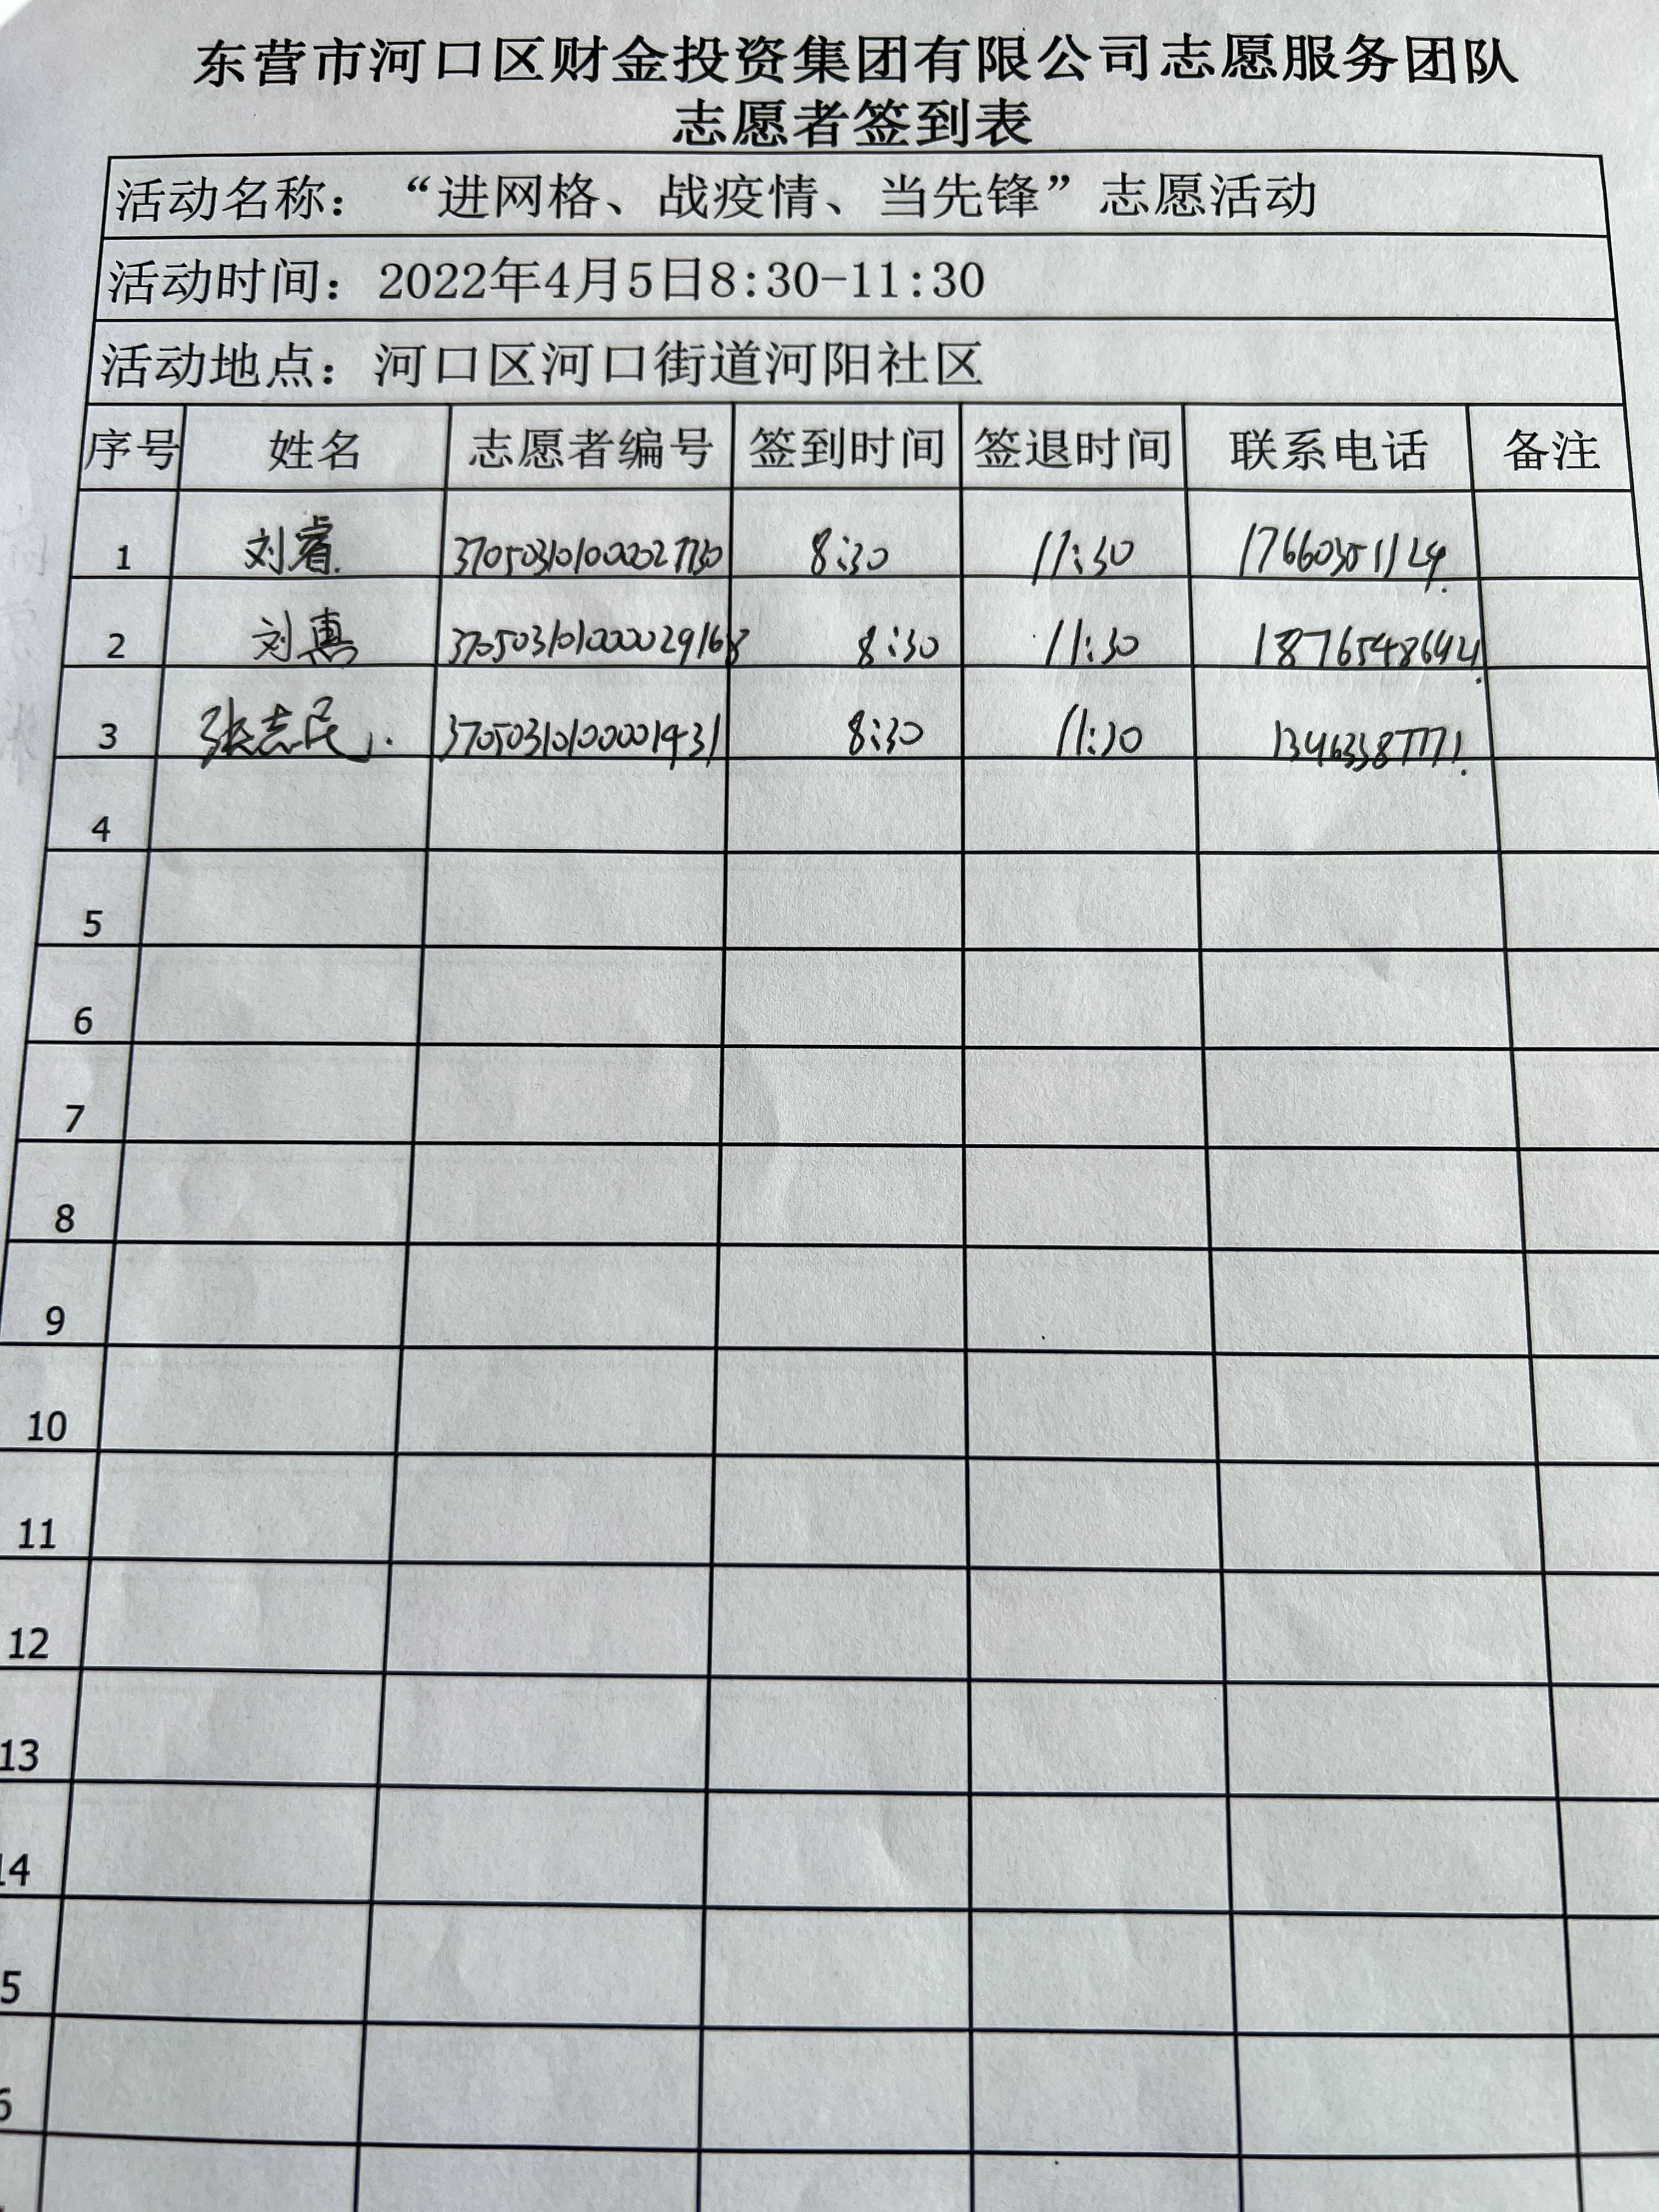 东营市河口区财金投资集团有限公司志愿服务团队
志愿者签到表
活动名称：“进网格、战疫情、当先锋”志愿活动
活动时间：2022年4月5日8:30-11:30
活动地点：河口区河口街道河阳社区
序号 姓名 志愿者编号 签到时间 签退时间 联系电话 备注
1 刘睿 8:30 11:30
2 刘惠 8:30 11:30
3 张志民 8:30 11:30
4
5
6
7
8
9
10
11
12
13
14
5
6